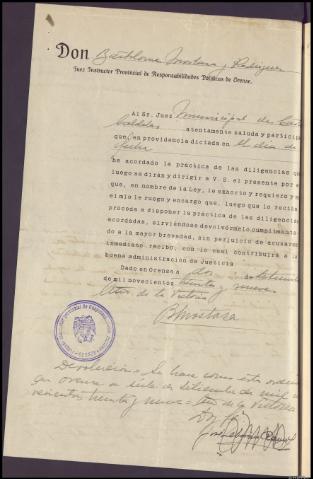 Don Bartolome Mostaza y Rodriguez
Juez Instructor Provincial de Responsabilidades Políticas de Orense.
Al Sr. Juez Municipal de
atentamente saluda y particip
que en providencia dictada en el dia de
fecha
he acordado la práctica de las diligencias que
luego se dirán y dirigir a V. S. el presente por e
que, en nombre de la Ley, le exhorto y requiero y e
el mio le ruego y encargo que, luego que lo reciba
proceda a disponer la práctica de las diligencia
acordadas, sirviéndose devolvérmelo cumplimentado
do a la mayor brevedad, sin perjuicio de acusarme
inmediato recibo, con lo cual contribuirá a la
buena administración de Justicia
Dado en Orense a dos de diciembre
de mil novecientos treinta y nueve
Año de la Victoria
BMostaza
Devolucion; la hace como está ordena
en Orense a siete de diciembre de mil no
vecientos treinta y nueve Año de la Victoria